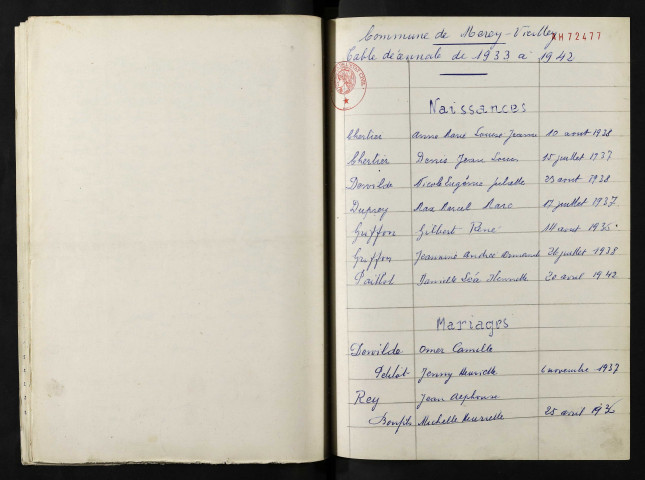 Commune de Merey-Vieilley
XH72477
Table décennale de 1933 à 1942
Naissances
Cherlier Anne Marie Louise Jeanne 10 aout 1938
Cherlier Denis Jean Louis 15 juillet 1937
Dewilde Nicole Eugénie Juliette 23 aout 1938
Duprey Max Marcel Marc 17 juillet 1937
Griffon Gilbert René 14 aout 1935
Griffon Jeannine Andrée 26 juillet 1938
Paillot Danielle Léa Henriette 20 avril 1942
Mariages
Dewilde Omer Camille
Petitot Jenny Henriette 6 novembre 1937
Rey Jean Alphonse
Michelle Henriette 25 avril